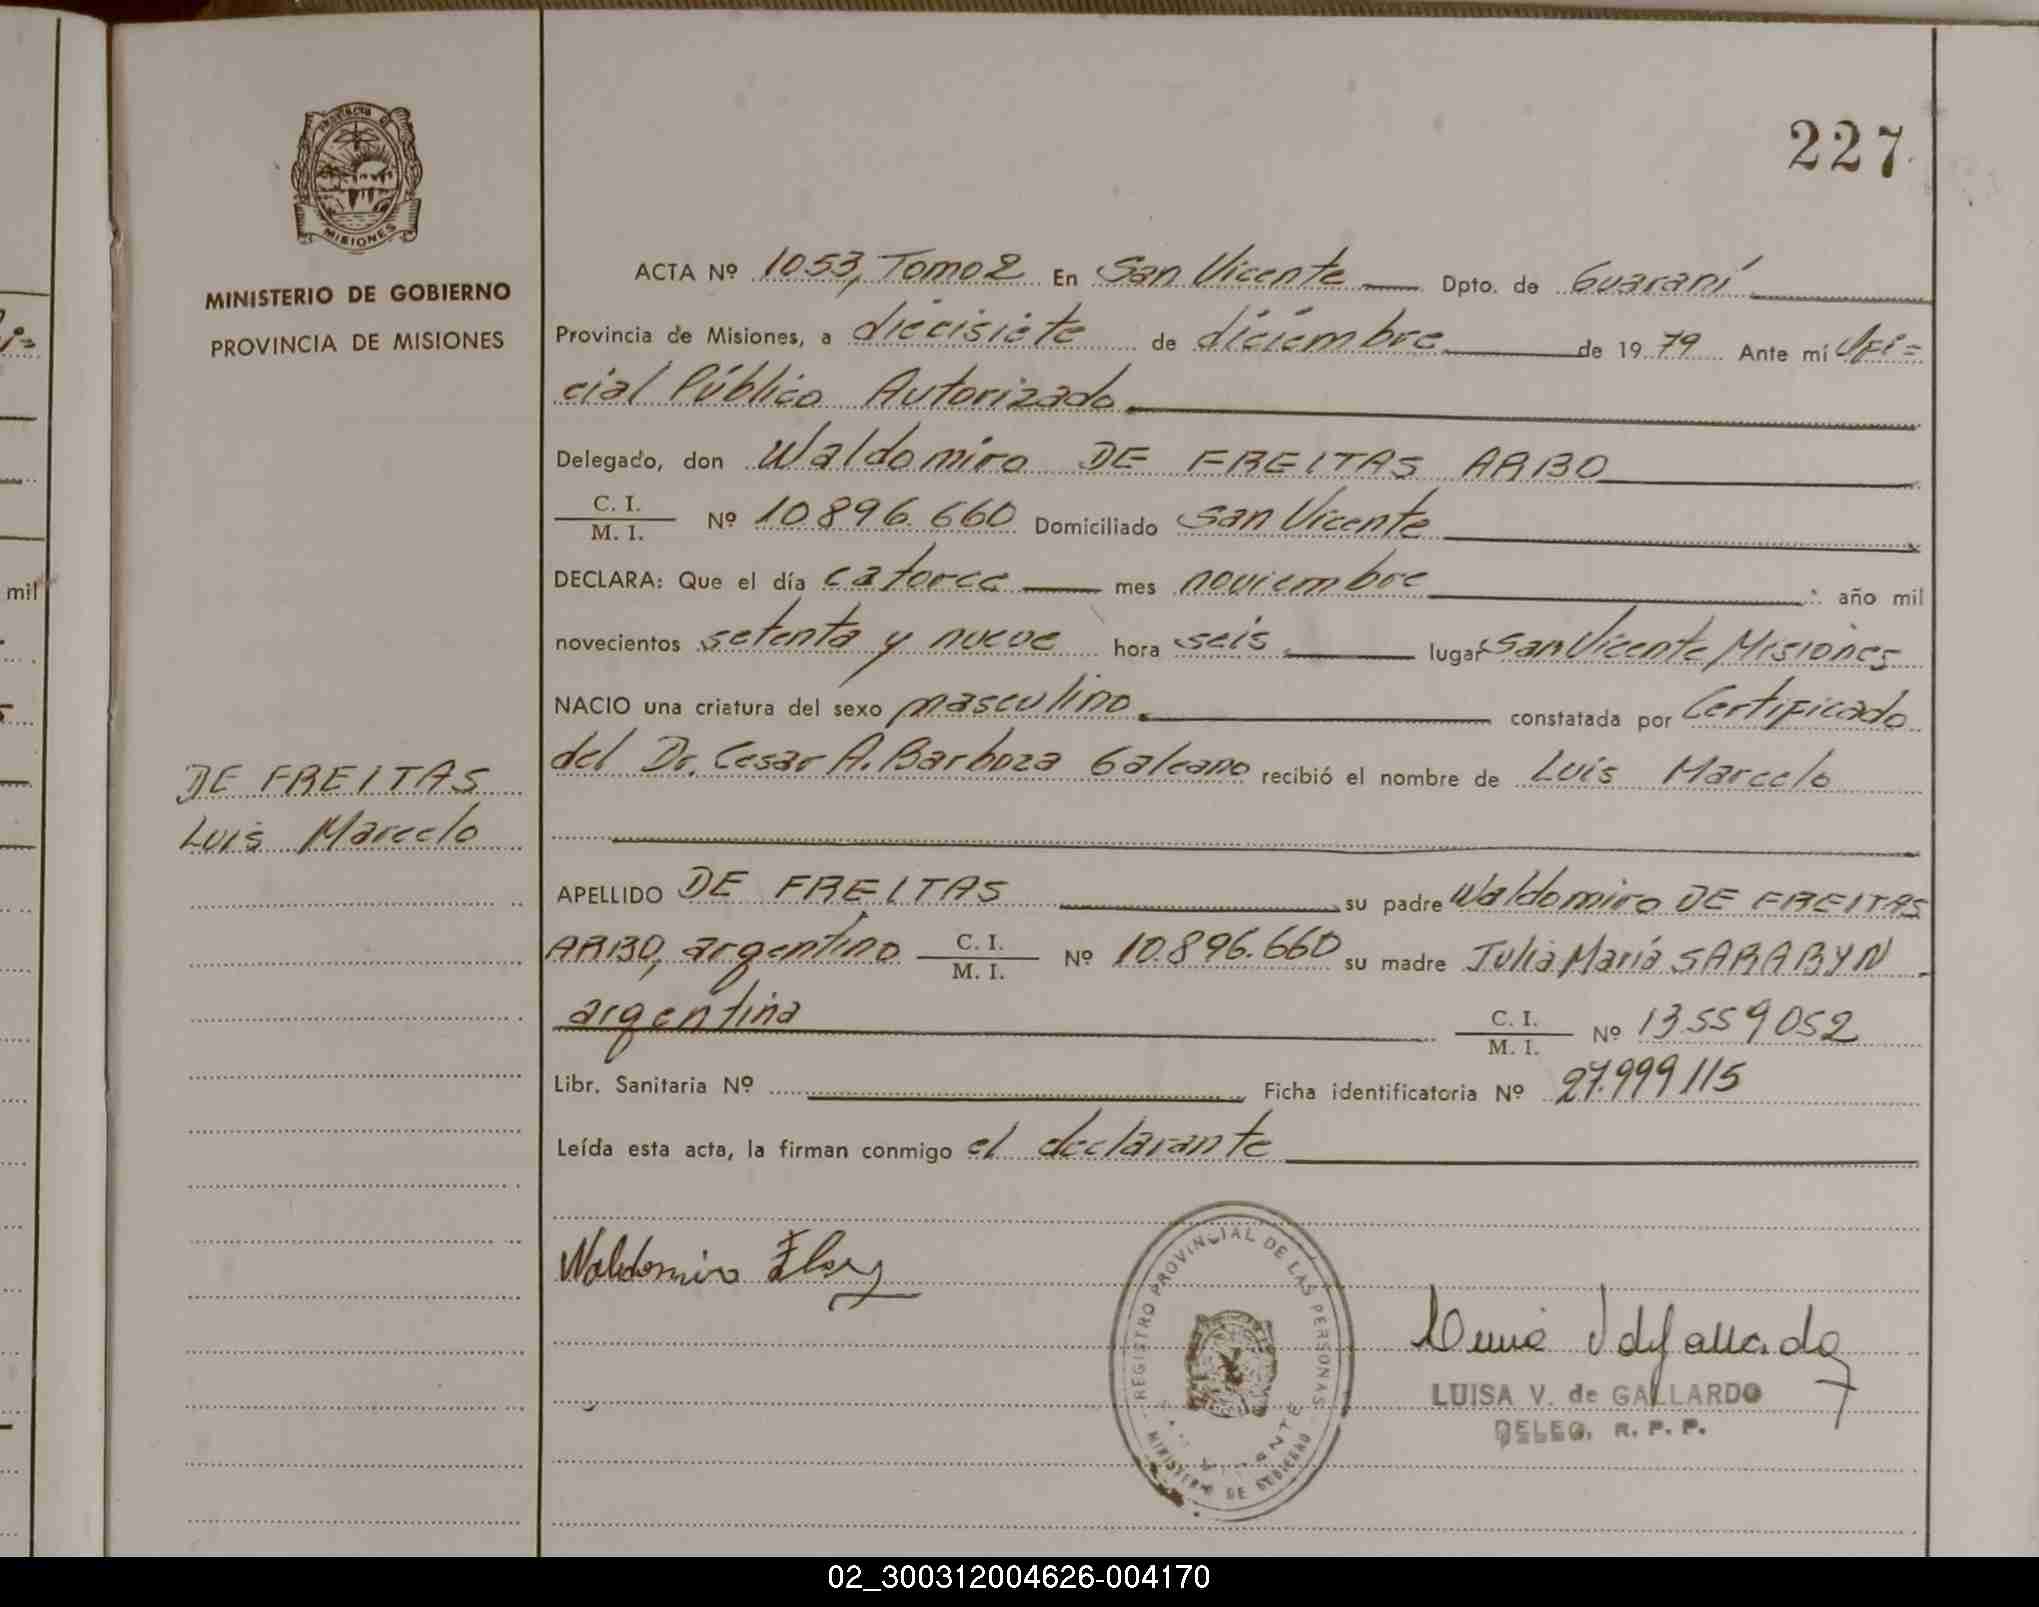 227
PROVINCIA D
MISIONES
MINISTERIO DE GOBIERNO
PROVINCIA DE MISIONES
ACTA Nº 1053, Tomo 2 En San Vicente Dpto. de Guaraní
Provincia de Misiones, a diecisiete de diciembre de 19 79 Ante mí Ofi=
cial Público Autorizado
Delegado, don Waldomiro DE FREITAS ARBO
C. I.
M. I. Nº 10.896.660 Domiciliado San Vicente
DECLARA: Que el día catorce mes noviembre año mil
novecientos setenta y nueve hora seis lugar San Vicente, Misiones
NACIO una criatura del sexo masculino constatada por Certificado
del Dr. Cesar A. Barboza Galeano recibió el nombre de Luis Marcelo
DE FREITAS
Luis Marcelo
APELLIDO DE FREITAS su padre Waldomiro DE FREITAS
ARBO, argentino C. I. M. I. Nº 10.896.660 su madre Julia María SARABYN
argentina C. I. M. I. Nº 13559052
Libr. Sanitaria Nº Ficha identificatoria Nº 27.999.115
Leída esta acta, la firman conmigo el declarante
Waldomiro
REGISTRO PROVINCIAL DE LAS PERSONAS
MINISTERIO DE GOBIERNO
LUISA V. de GALLARDO
DELEG. R. P. P.
mil
02_300312004626-004170